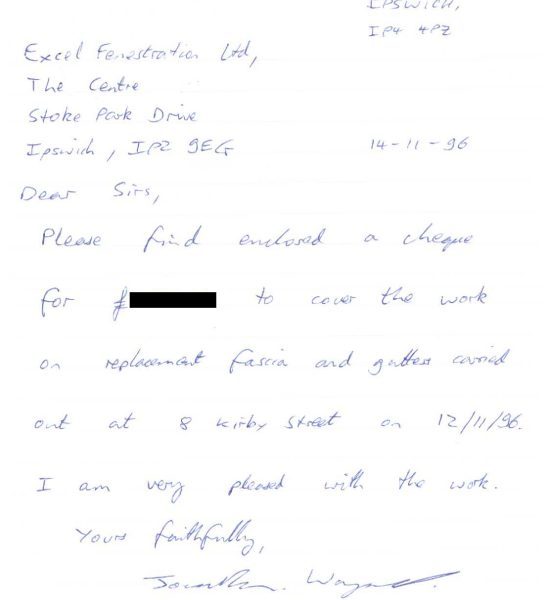 Ipswich,
IP4 4PZ
Excel Fenestration Ltd,
The Centre
Stoke Park Drive
Ipswich, IP2 9EG
14-11-96
Dear Sirs,
Please find enclosed a cheque
for £ to cover the work
on replacement fascia and gutters carried
out at 8 Kirby Street on 12/11/96.
I am very pleased with the work.
Yours faithfully,